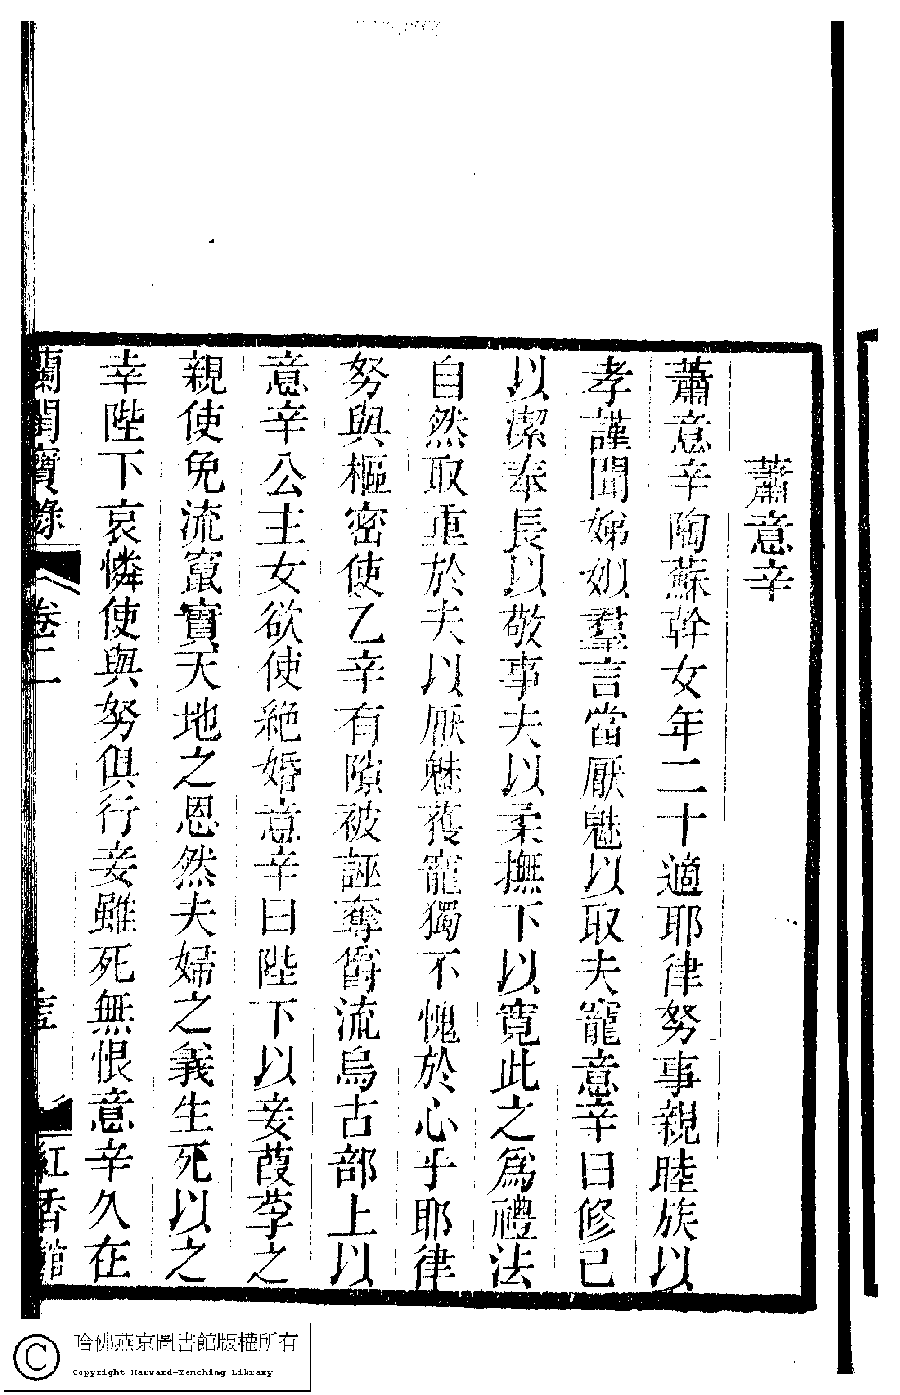 蕭意辛
蕭意辛陶蘇幹女年二十適耶律努事親睦族以
孝謹聞娣姒羣言當厭魅以取夫寵意辛曰修己
以潔奉長以敬事夫以柔撫下以寬此之爲禮法
自然取重於夫以厭魅獲寵獨不愧於心乎耶律
努與樞密使乙辛有隙被誣奪爵流烏古部上以
意辛公主女欲使絕婚意辛曰陛下以妾葭莩之
親使免流竄實天地之恩然夫婦之義生死以之
幸陛下哀憐使與努俱行妾雖死無恨意辛久在
蘭閨寶錄
卷二
紅香館
哈佛燕京圖書館版權所有
Copyright Harvard-Yenching Library